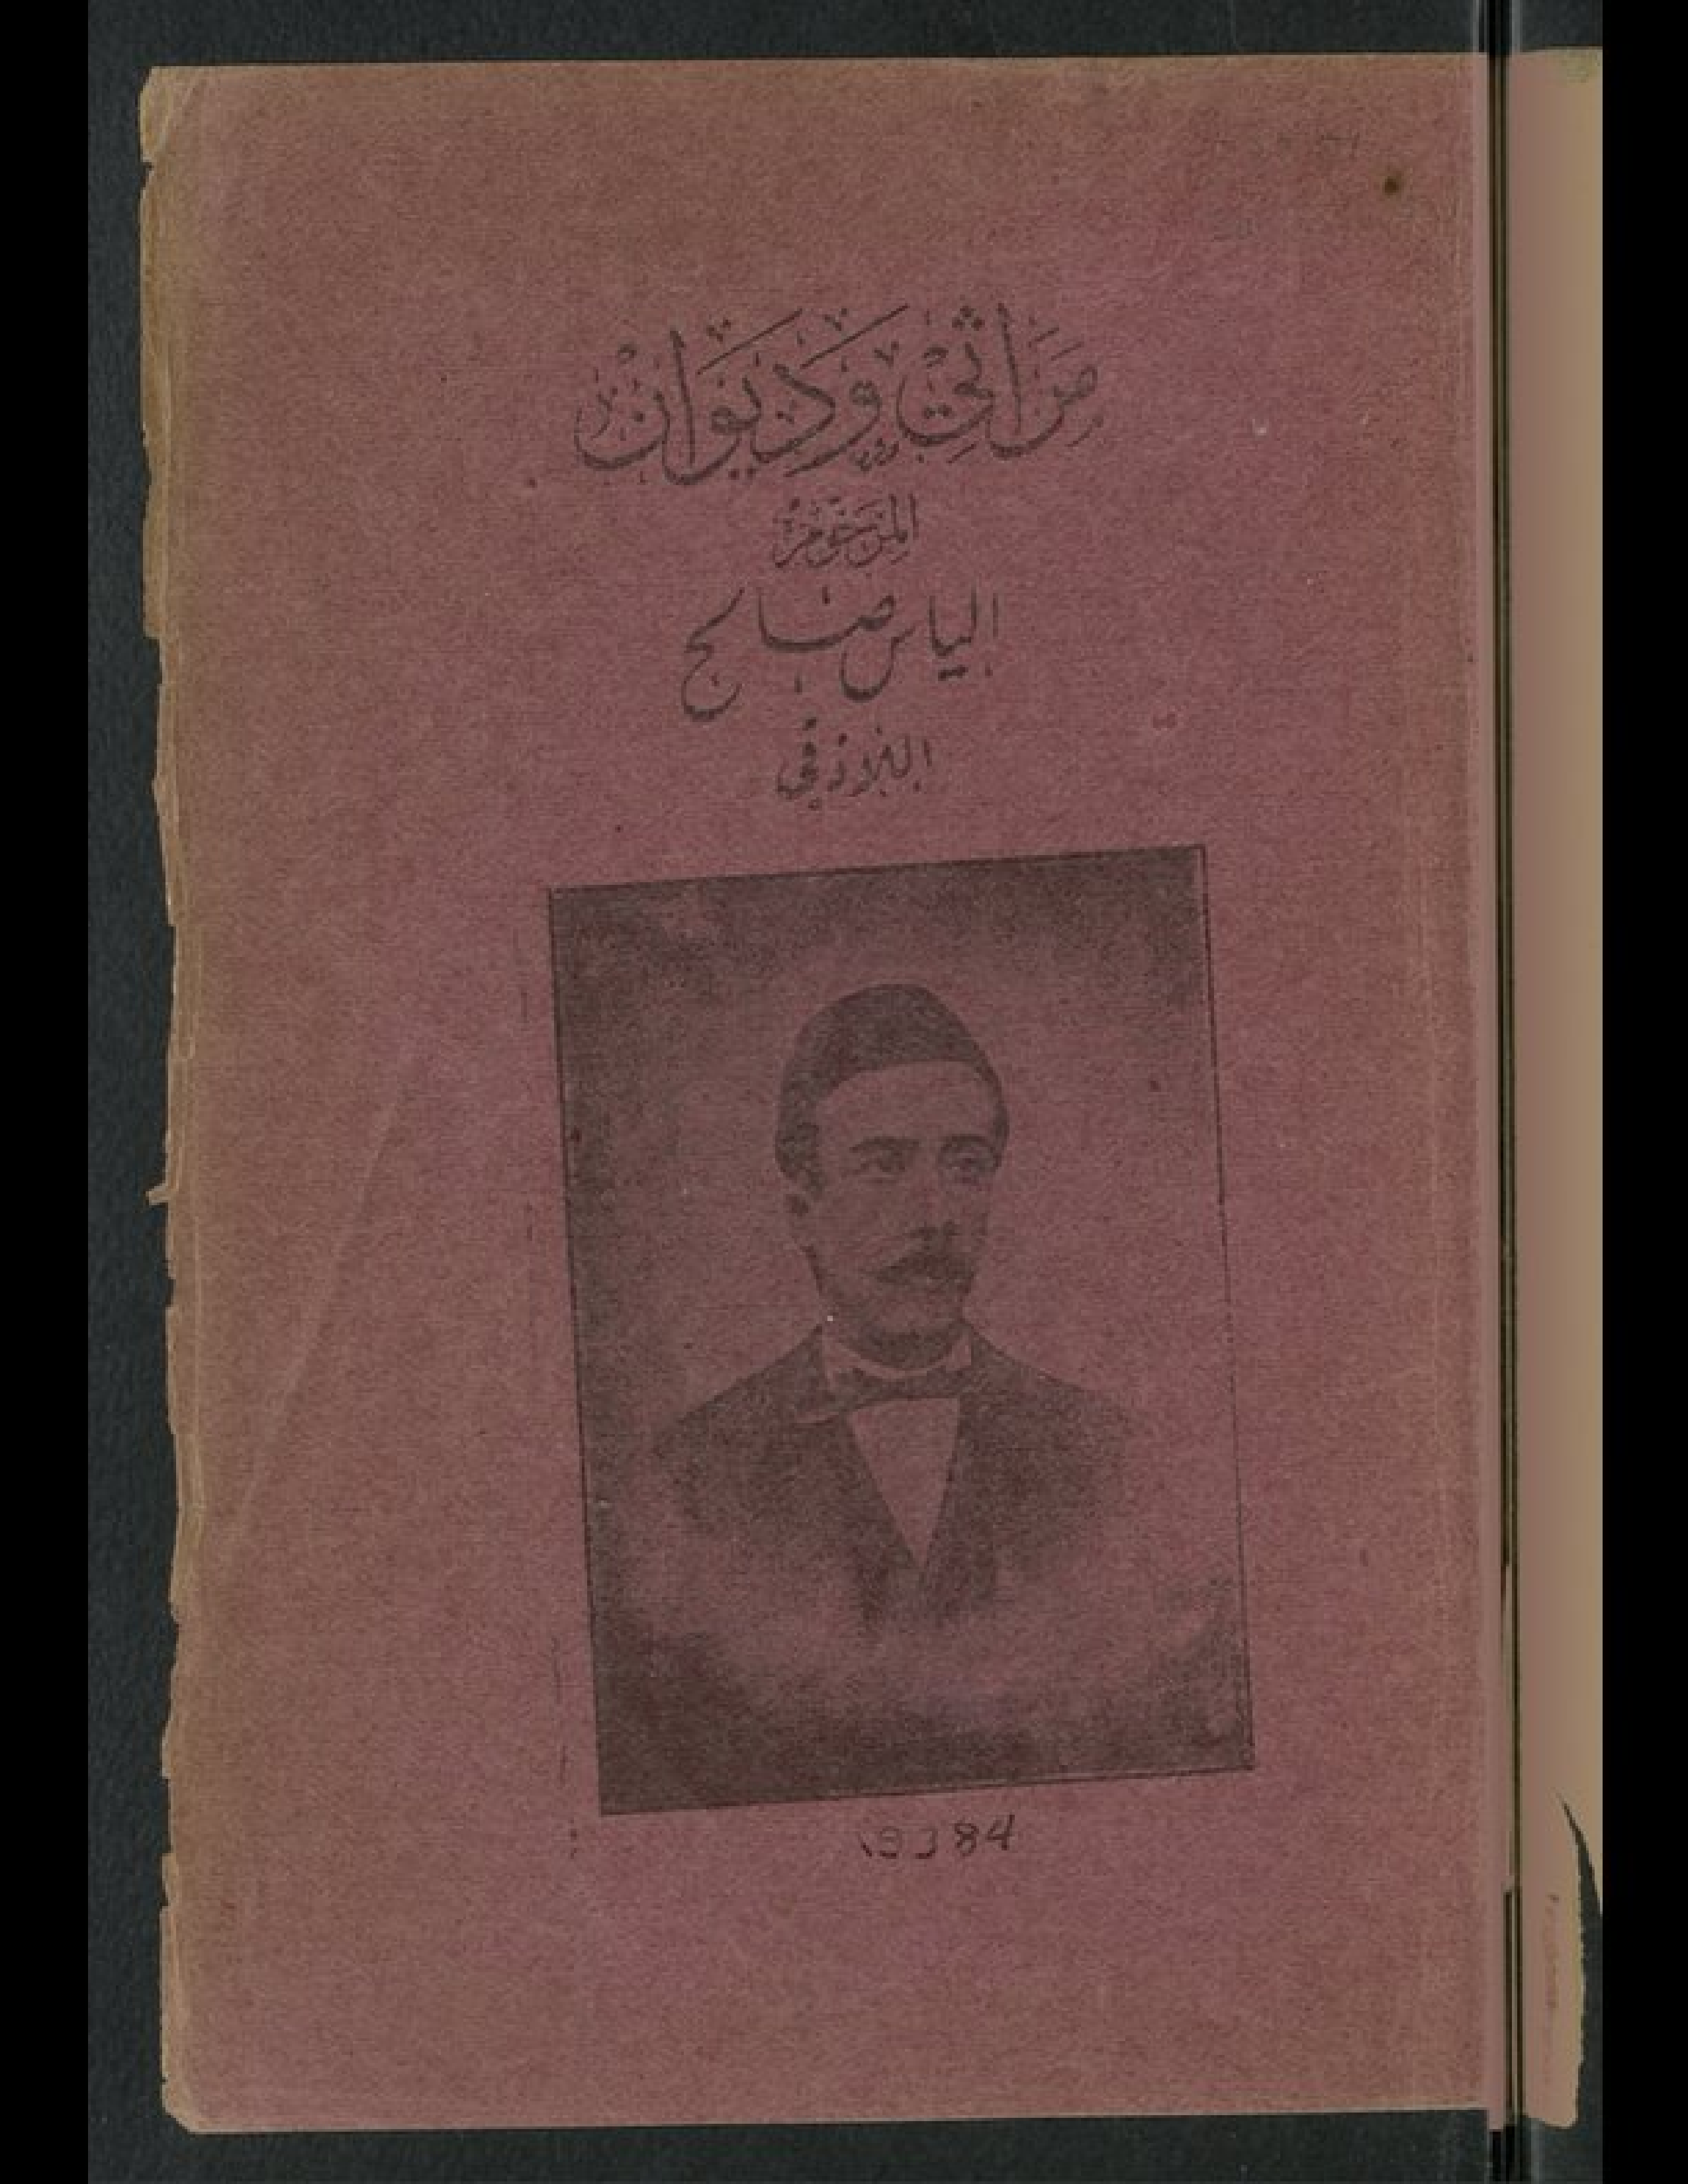 مَرَاثِي وَدِيوَان
المَرحُوم
الياس صالح
اللاذقي